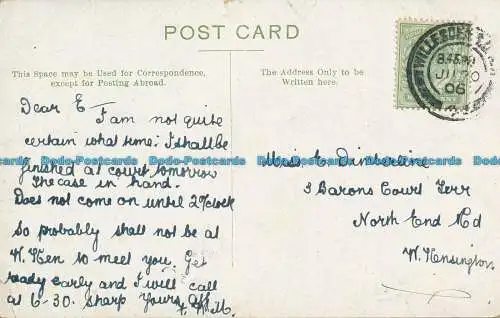 POST CARD
This Space may be Used for Correspondence,
except for Posting Abroad.
The Address Only to be
Written here.
WILLESDEN
8.45 PM
JU 20
06
Dear E— I am not quite
certain what time I shall be
finished at court tomorrow
The case in hand.
Does not come on until 2 o'clock
So probably shall not be at
W. Ken to meet you. Get
ready early and I will call
at 6-30. sharp Yours
Miss E.
3 Barons Court Terr
North End Rd
W. Kensington
www.bakulapostcards.com